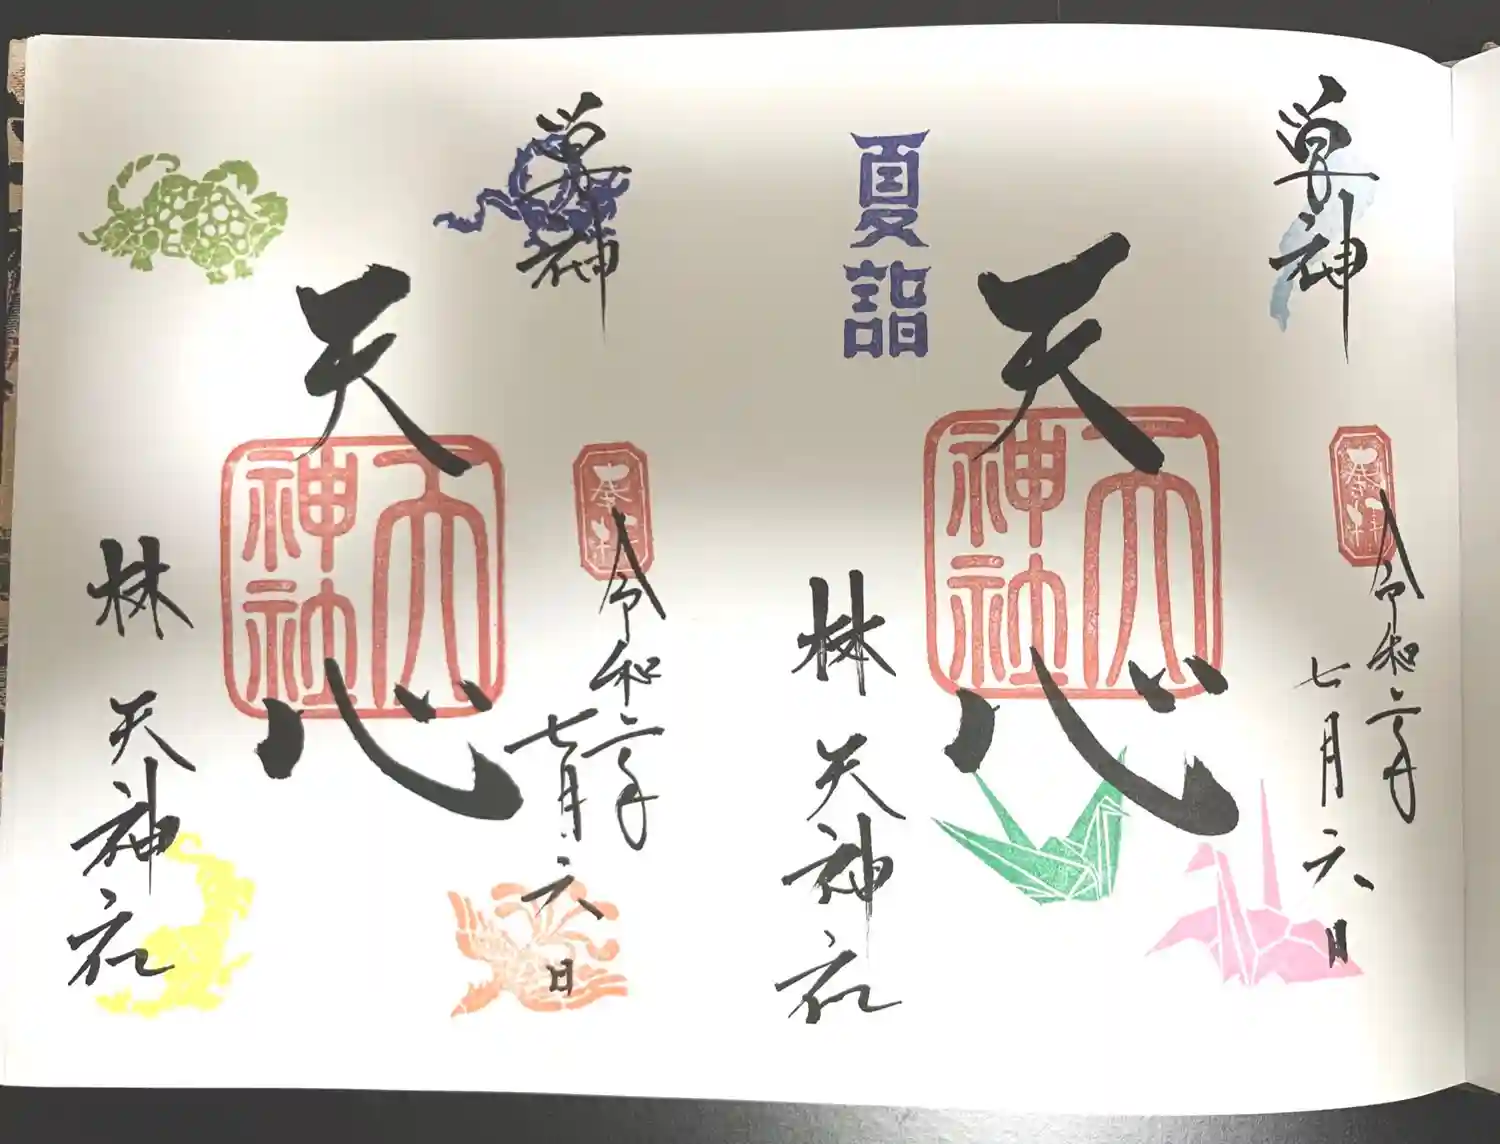 学神
奉拝
令和二年
七月六日
夏詣
天心
天神社
林天神社
学神
奉拝
令和二年
七月六日
天心
天神社
林天神社